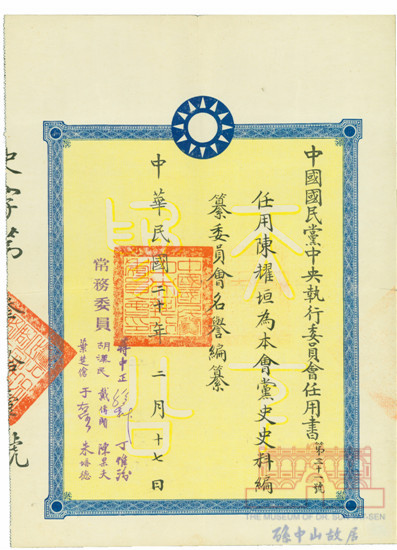 中國國民黨中央執行委員會任用書
第二十一號
任用陳耀垣為本會黨史史料編
纂委員會名譽編纂
天下為公
常務委員
蔣中正
胡漢民
葉楚傖
戴傳賢
于右任
丁惟汾
陳果夫
朱培德
中華民國二十年二月十七日
史字第
號
MUSEUM OF DR. SUN YAT-SEN
孫中山故居